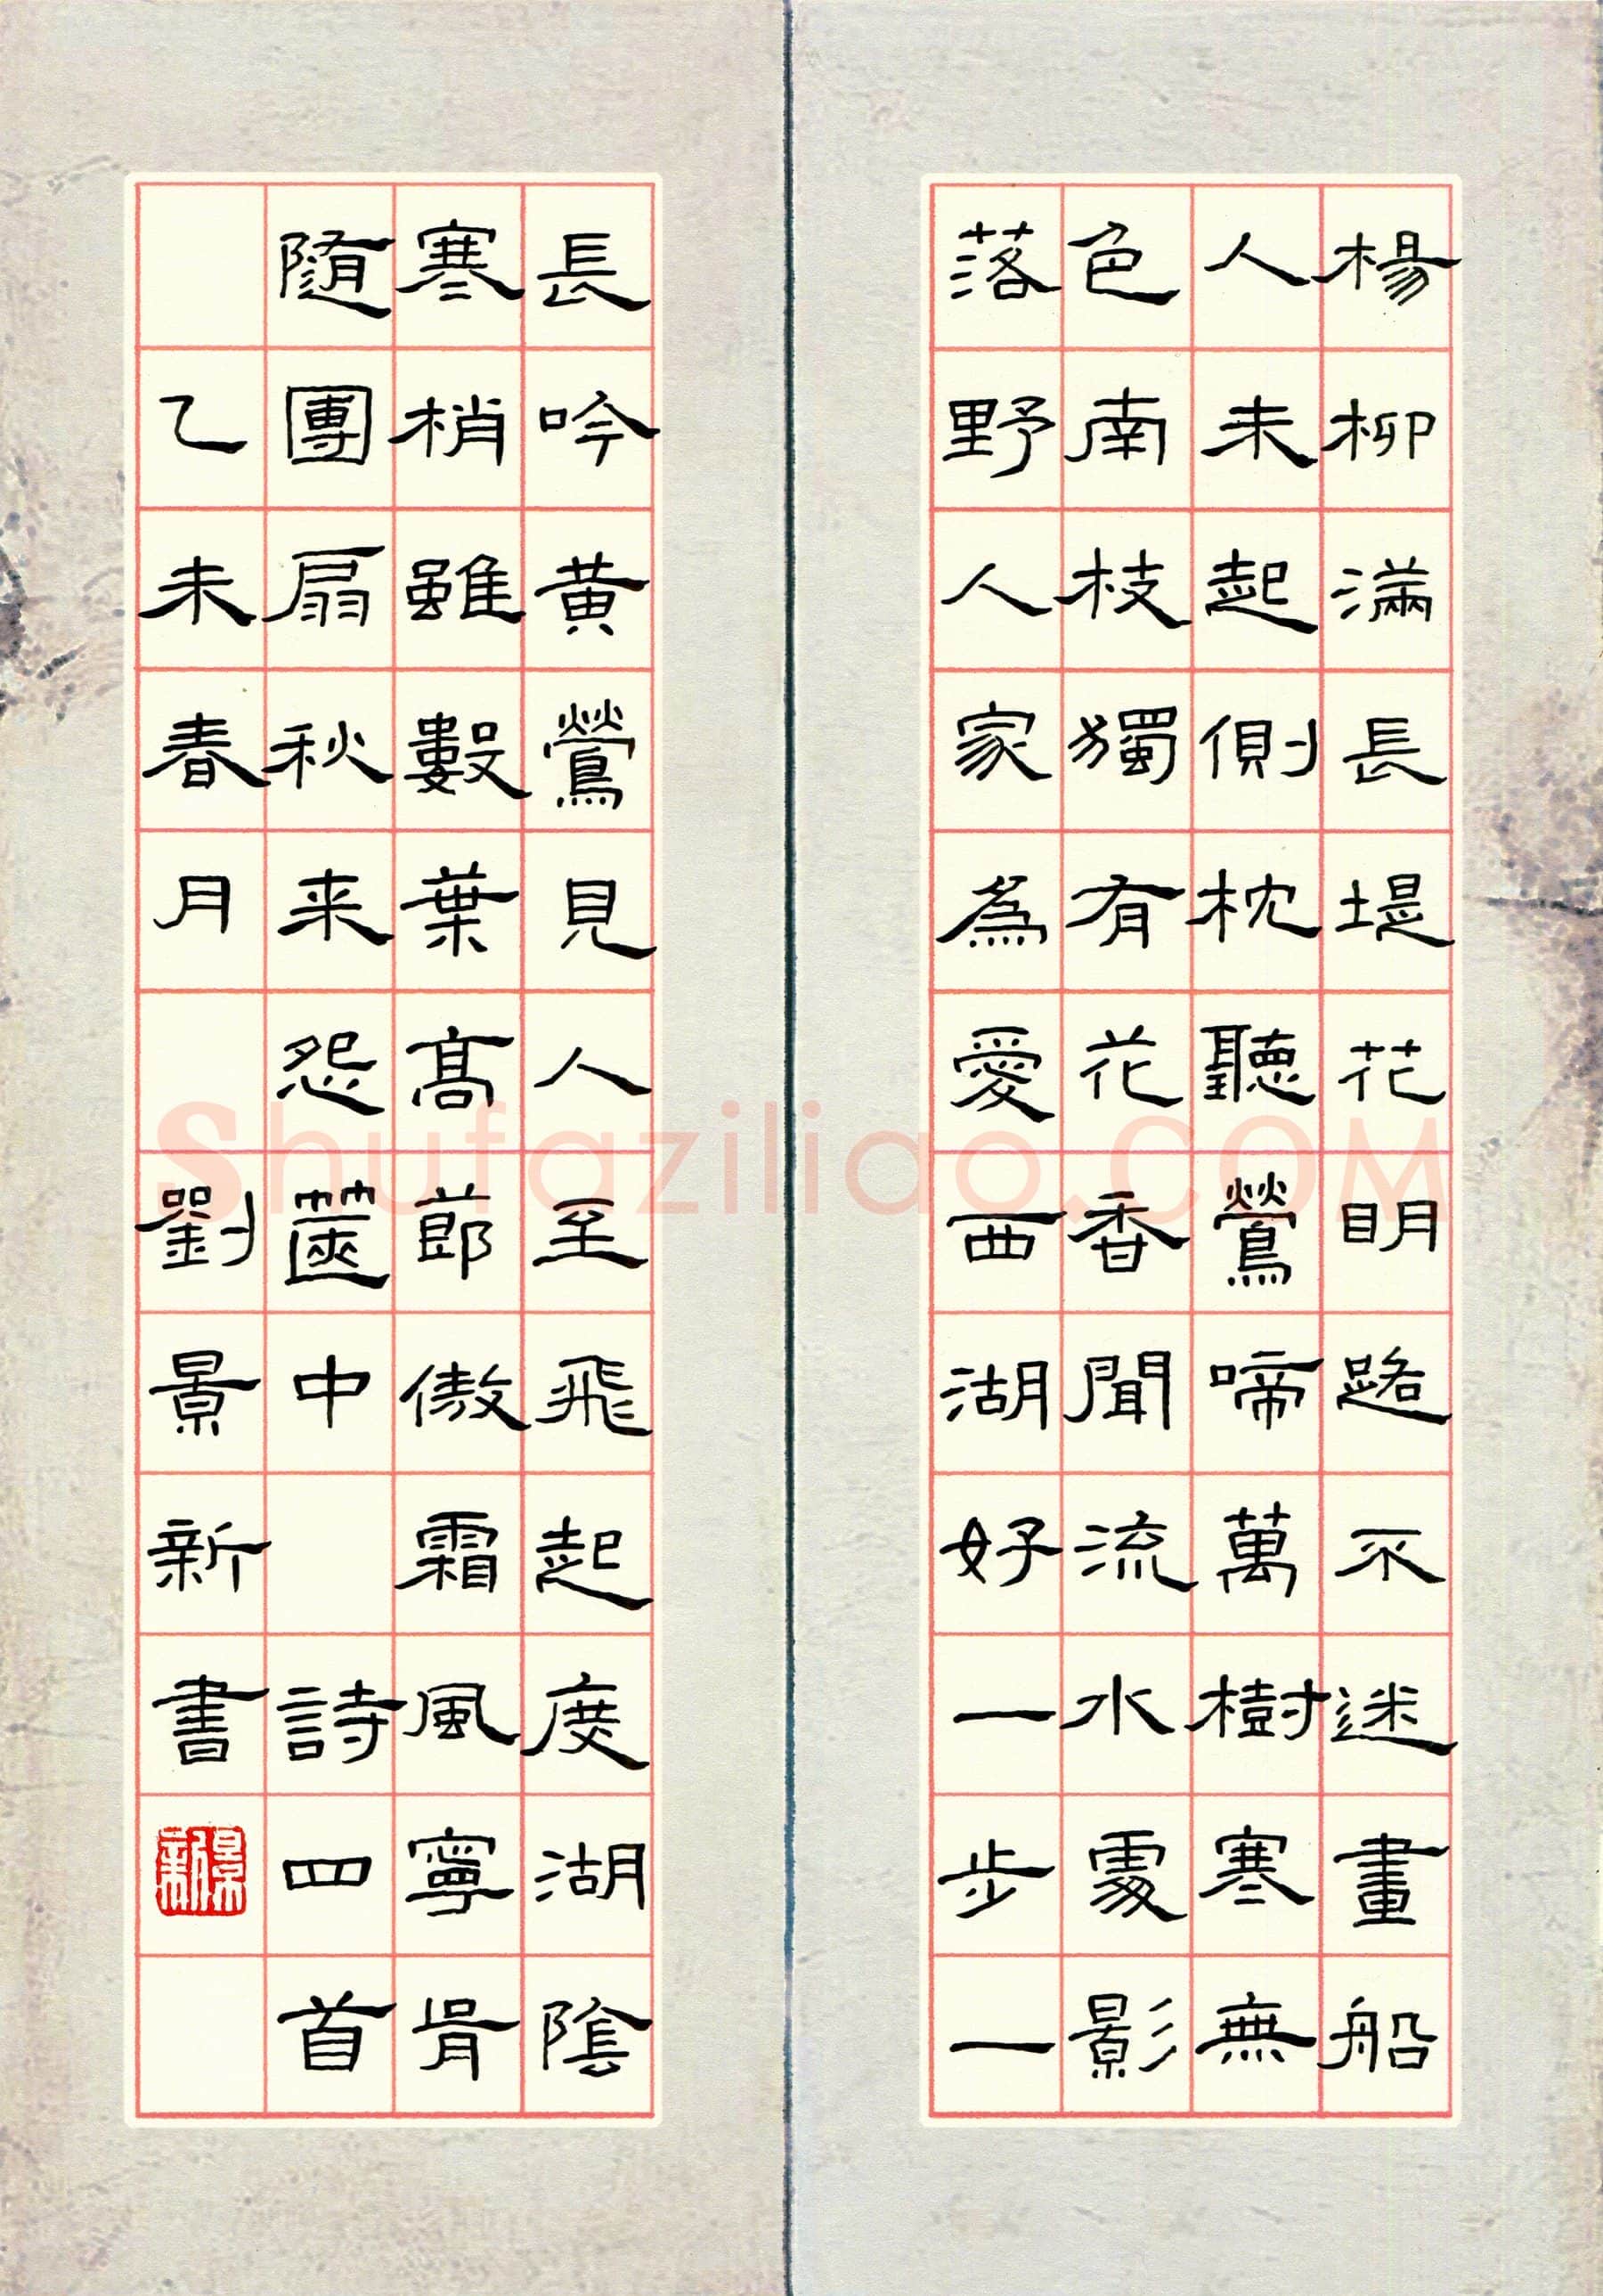 楊柳滿長堤花明路不迷畫船
人未起側枕聽鶯啼萬樹寒無
色南枝獨有花香聞流水處影
落野人家為愛西湖好一步一
長吟黃鶯見人至飛起度湖陰
寒梢雖數葉高節傲霜風寧肯
隨團扇秋来怨篋中 詩四首
乙未春月 劉景新書
景新
Shufaziliao.COM